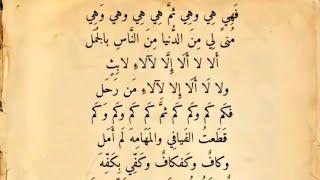 فَهِيَ هِيَ وَهِيَ ثمَّ هِيَ هِيَ وهي وَهِيَ
مُنىً لِي مِنَ الدُّنيا مِنَ النَّاسِ بالجُمَل
أَلا لا أَلَا إِلَّا لآلاءِ لابِثٍ
ولا لَا أَلَا إلا لآلاءِ مَن رَحَل
فكَم كَم وَكَم كَم ثمَّ كَم كَم وكَم وَكَم
قَطَعتُ الفَيافِي والمَهَامِهَ لَم أَمَل
وكافٌ وكَفكافٌ وكَفِّي بِكَفِّهَ